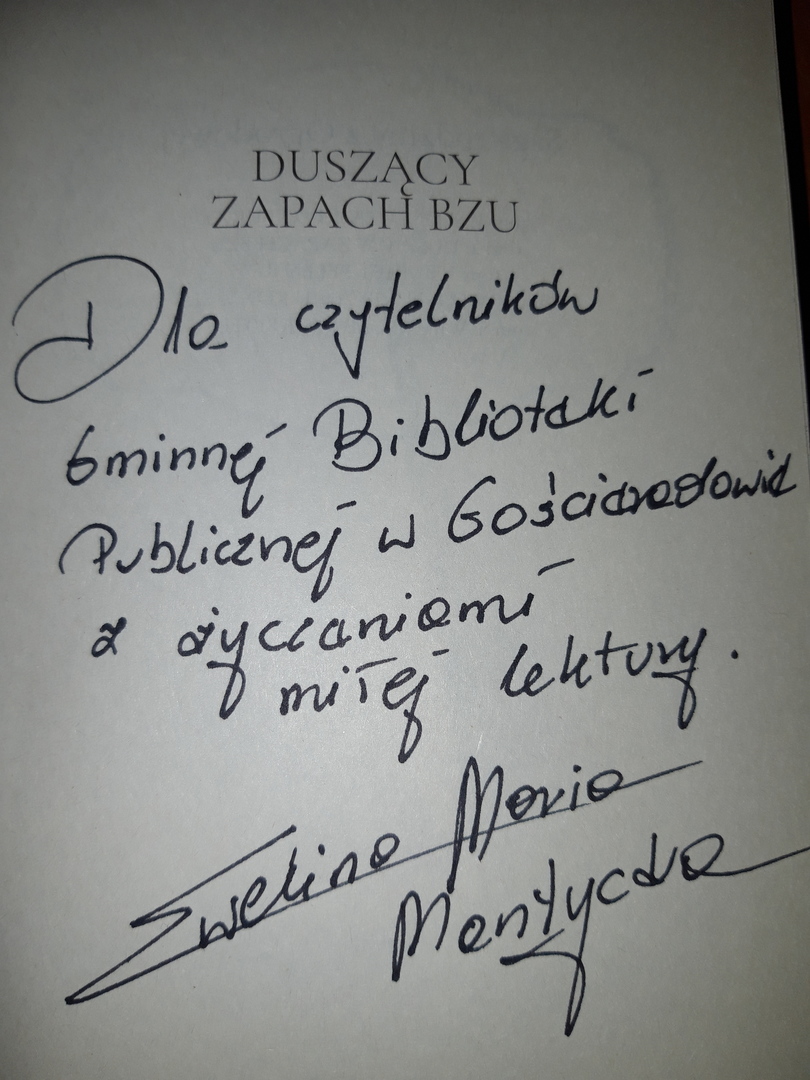 DUSZĄCY
ZAPACH BZU
Dla czytelników
Gminnej Biblioteki
Publicznej w Gościeradowie
z życzeniami
miłej lektury.
Ewelina Maria
Mantycka